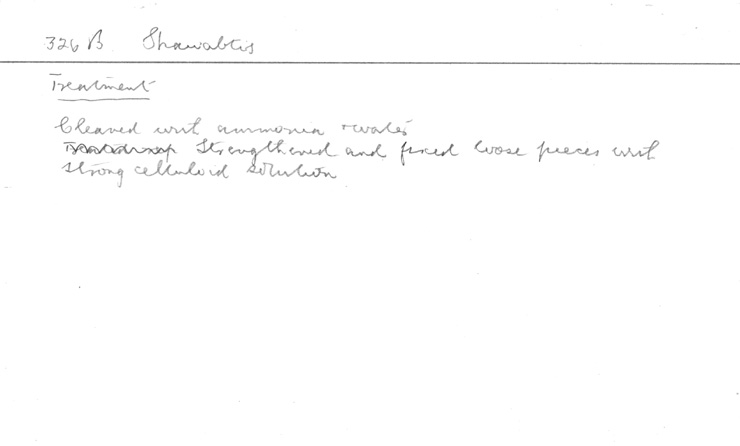 326 B. Shawabtis
Treatment
Cleaned with ammonia + water
Strengthened and fixed loose pieces with
strong celluloid solution